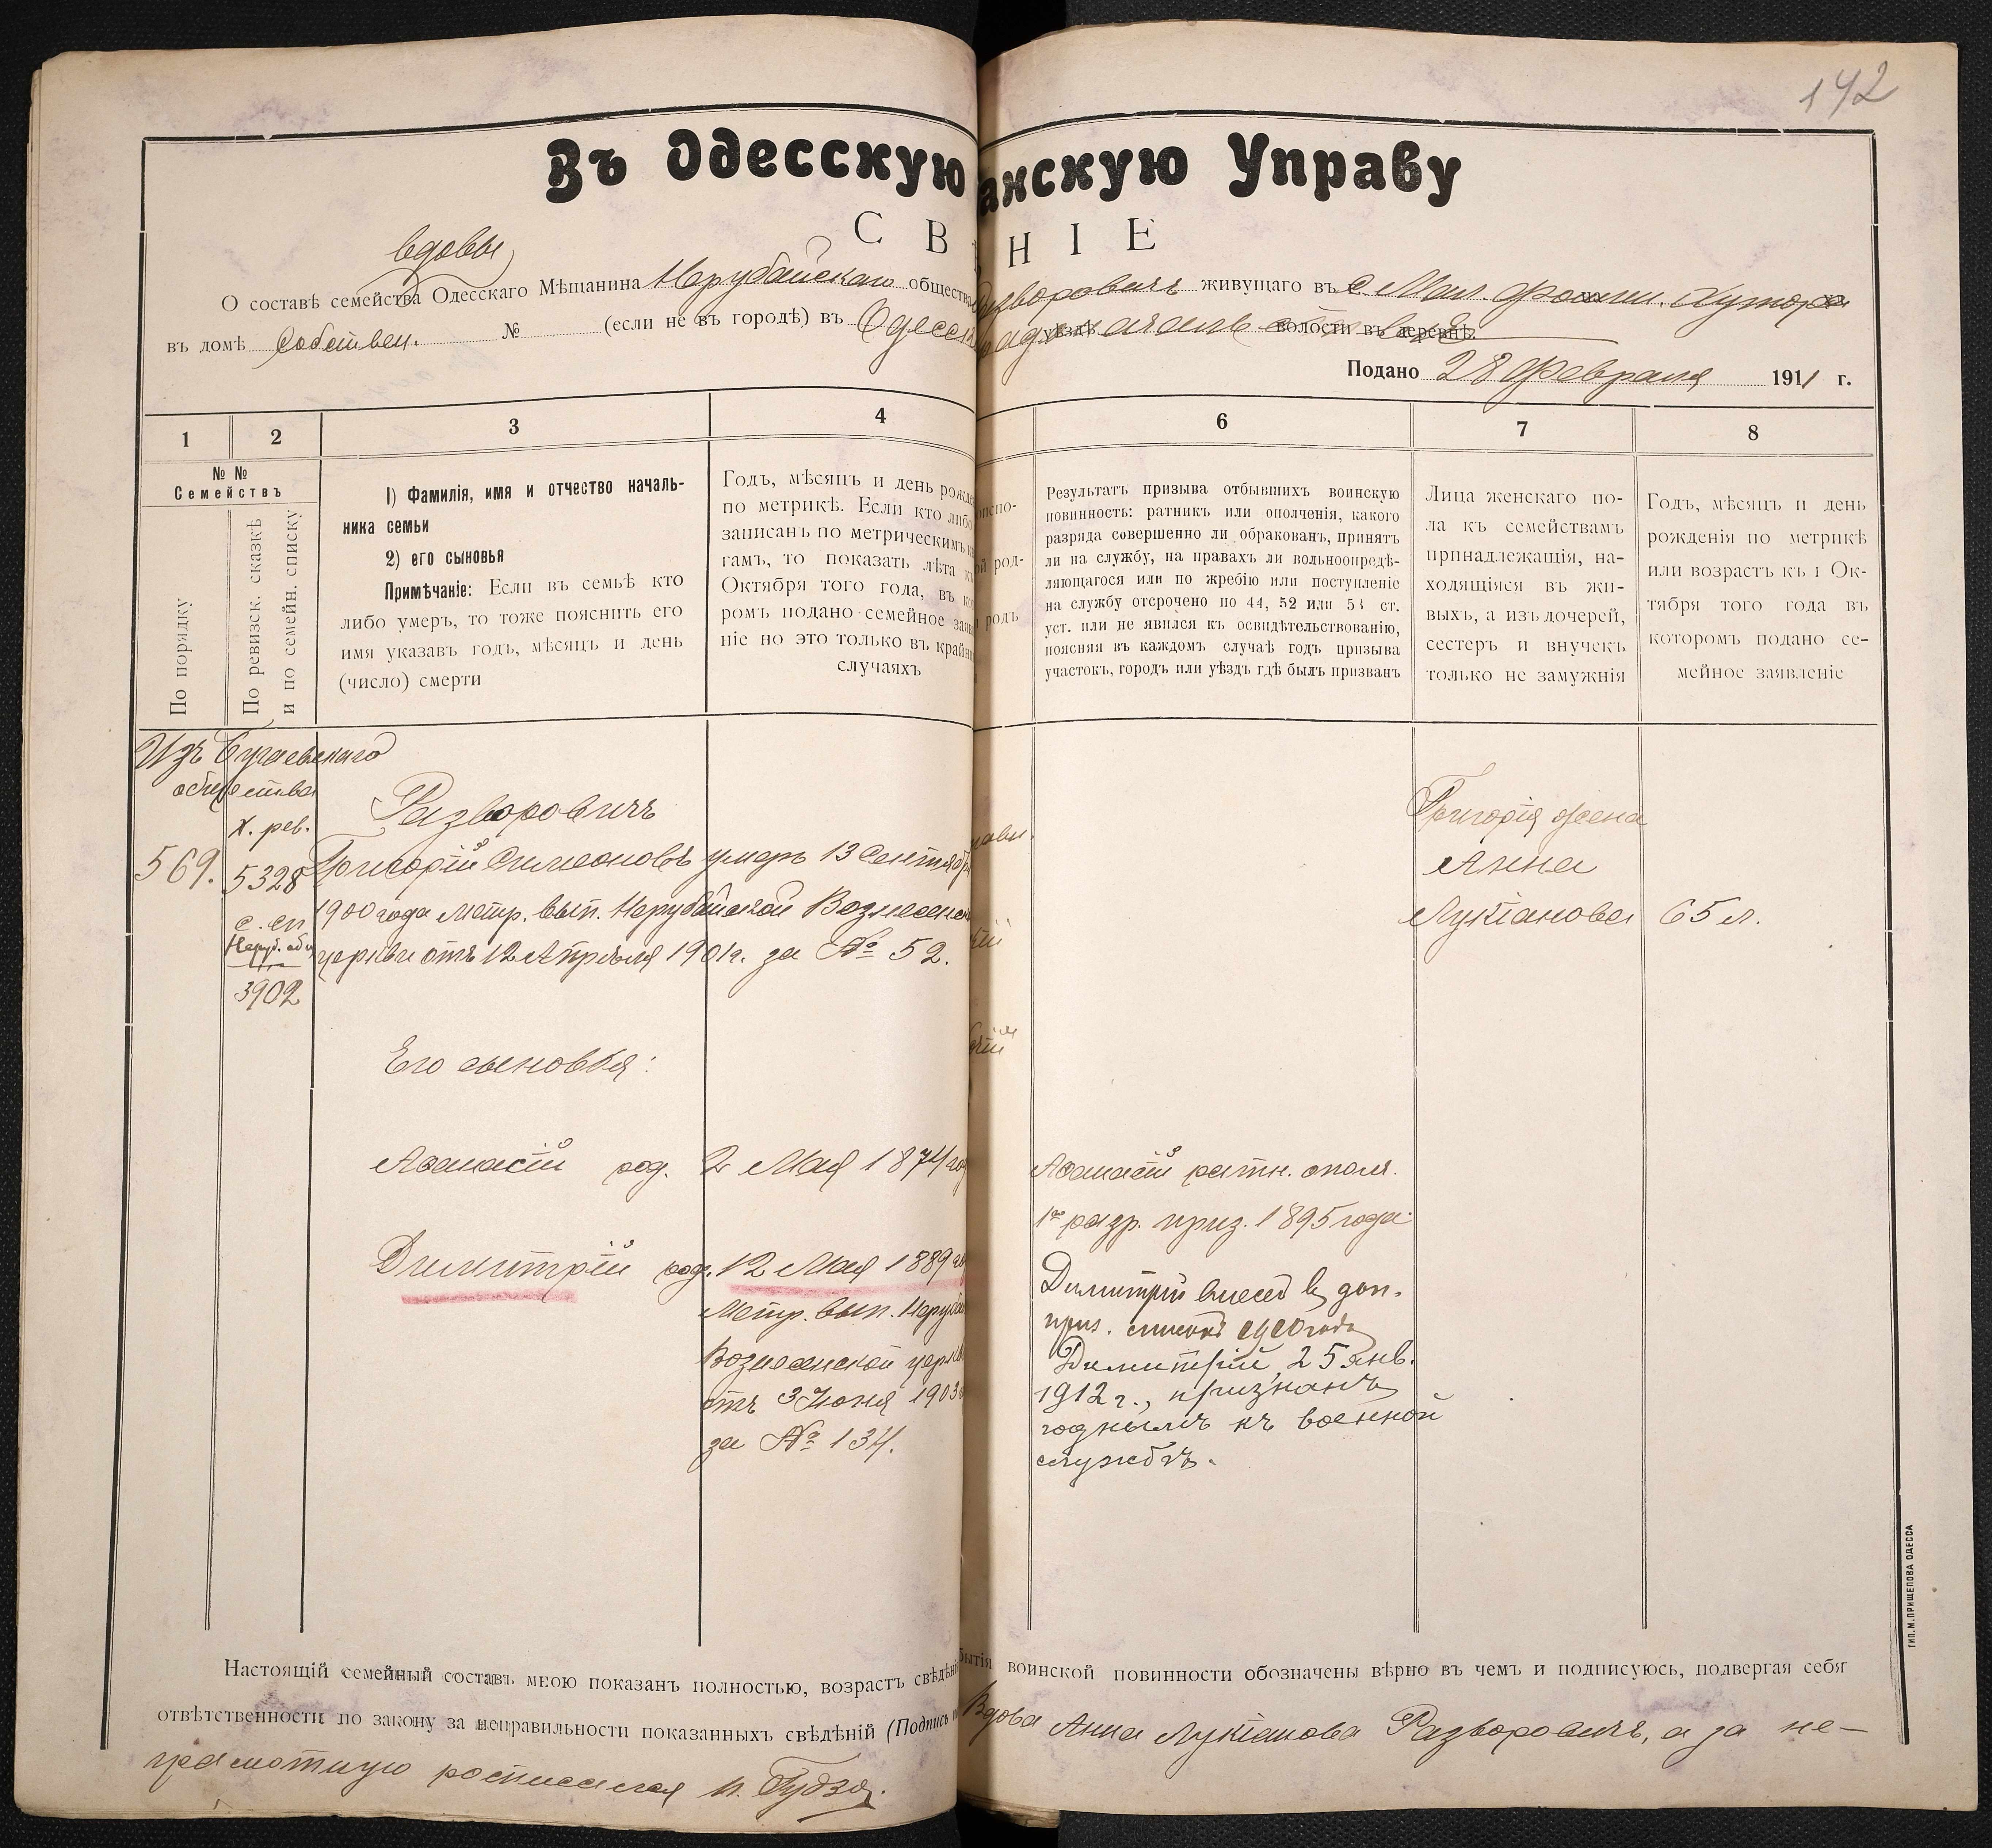 142
Въ Одесскую анскую Управу
С В Н І Е
вдовы
О составѣ семейства Одесскаго Мѣщанина Нерубайскаго общества Разворовичъ живущаго въ с. Мал. Фонтан. Хутора
въ домѣ Собствен. № (если не въ городѣ) въ уѣздѣ волости въ деревнѣ
Подано 28 Февраля 1911 г.
1 2 3 4 6 7 8
№ №
Семействъ
По порядку
По ревизск. сказкѣ
и по семейн. списку
1) Фамилія, имя и отчество началь-
ника семьи
2) его сыновья
Примѣчаніе: Если въ семьѣ кто
либо умеръ, то тоже пояснить его
имя указавъ годъ, мѣсяцъ и день
(число) смерти
Годъ, мѣсяцъ и день рожде
по метрикѣ. Если кто либо
записанъ по метрическимъ к
гамъ, то показать лѣта к
Октября того года, въ ко
ромъ подано семейное заяв
ніе но это только въ крайн
случаяхъ
род-
родъ
Результатъ призыва отбывшихъ воинскую
повинность: ратникъ или ополченія, какого
разряда совершенно ли обракованъ, принятъ
ли на службу, на правахъ ли вольноопредѣ-
ляющагося или по жребію или поступленіе
на службу отсрочено по 44, 52 или 53 ст.
уст. или не явился къ освидѣтельствованію,
поясняя въ каждомъ случаѣ годъ призыва
участокъ, городъ или уѣздъ гдѣ былъ призванъ
Лица женскаго по-
ла къ семействамъ
принадлежащія, на-
ходящіяся въ жи-
выхъ, а изъ дочерей,
сестеръ и внучекъ
только не замужнія
Годъ, мѣсяцъ и день
рожденія по метрикѣ
или возрастъ къ 1 Ок-
тября того года въ
которомъ подано се-
мейное заявленіе
Изъ Бугаевскаго
общества
X. рев.
569. 5328
с. сп
Неруб. общ
3902
Разворовичъ
Григорій Симеоновъ умеръ 13 Сентября
1900 года Метр. вып. Нерубайской Вознесенск
церкви отъ 12 Апрѣля 1901 г. за № 52.
Григорія жена
Анна
Лукіанова 65 л.
Его сыновья:
Аѳанасій род. 2 Мая 1874 го
Димитрій род. 12 Мая 1889 го
Метр. вып. Неруба
Вознесенской церкв
отъ 3 Юоня 1903
за № 134.
Аѳанасій ратн. ополч.
1го разр. приз. 1895 года
Димитрій внесен в доп.
приз. списокъ 1910 года
Димитрій, 25 янв.
1912 г., признанъ
годнымъ къ военной
службѣ.
Настоящій семейный составъ мною показанъ полностью, возрастъ свѣдѣні бытія воинской повинности обозначены вѣрно въ чемъ и подписуюсь, подвергая себя
отвѣтственности по закону за неправильности показанныхъ свѣдѣній (Подпись Вдова Анна Лукіанова Разворовичъ, а за не-
грамотную росписался И. Гудзь.
ТИП. М. ПРИЩЕПОВА ОДЕССА